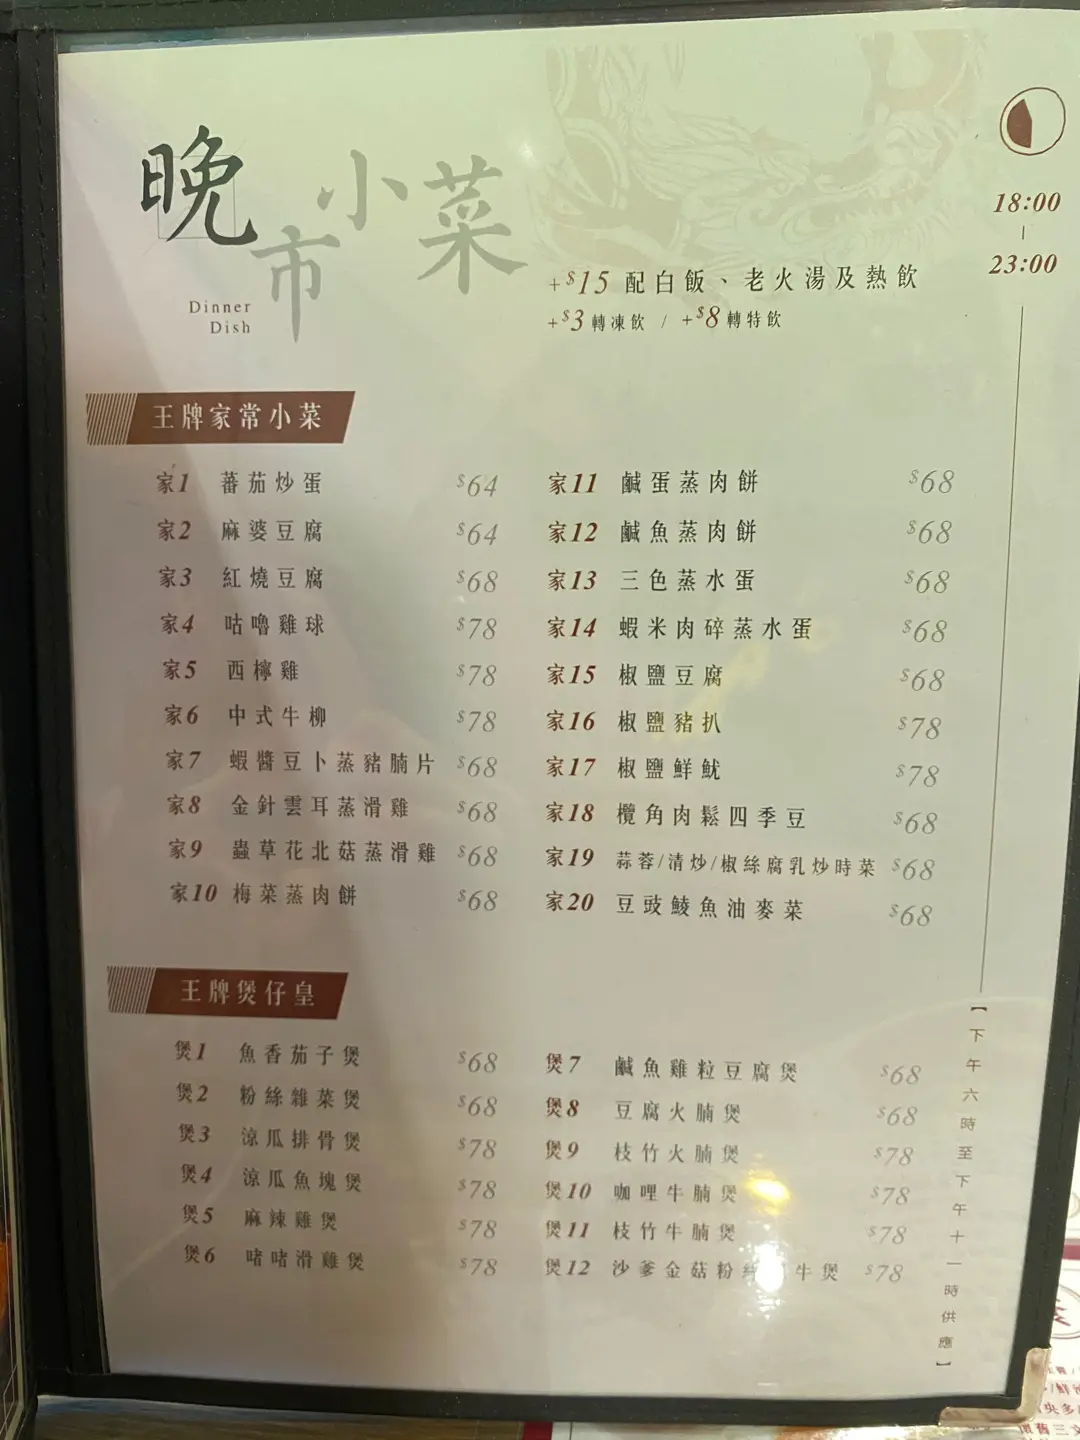 晚市小菜
Dinner
Dish
18:00
|
23:00
+$15 配白飯、老火湯及熱飲
+$3 轉凍飲 / +$8 轉特飲
王牌家常小菜
家1 蕃茄炒蛋 $64
家2 麻婆豆腐 $64
家3 紅燒豆腐 $68
家4 咕嚕雞球 $78
家5 西檸雞 $78
家6 中式牛柳 $78
家7 蝦醬豆卜蒸豬腩片 $68
家8 金針雲耳蒸滑雞 $68
家9 蟲草花北菇蒸滑雞 $68
家10 梅菜蒸肉餅 $68
家11 鹹蛋蒸肉餅 $68
家12 鹹魚蒸肉餅 $68
家13 三色蒸水蛋 $68
家14 蝦米肉碎蒸水蛋 $68
家15 椒鹽豆腐 $68
家16 椒鹽豬扒 $78
家17 椒鹽鮮魷 $78
家18 欖角肉鬆四季豆 $68
家19 蒜蓉/清炒/椒絲腐乳炒時菜 $68
家20 豆豉鯪魚油麥菜 $68
王牌煲仔皇
煲1 魚香茄子煲 $68
煲2 粉絲雜菜煲 $68
煲3 涼瓜排骨煲 $78
煲4 涼瓜魚塊煲 $78
煲5 麻辣雞煲 $78
煲6 啫啫滑雞煲 $78
煲7 鹹魚雞粒豆腐煲 $68
煲8 豆腐火腩煲 $68
煲9 枝竹火腩煲 $78
煲10 咖哩牛腩煲 $78
煲11 枝竹牛腩煲 $78
煲12 沙爹金菇粉絲牛煲 $78
【下午六時至下午十一時供應】